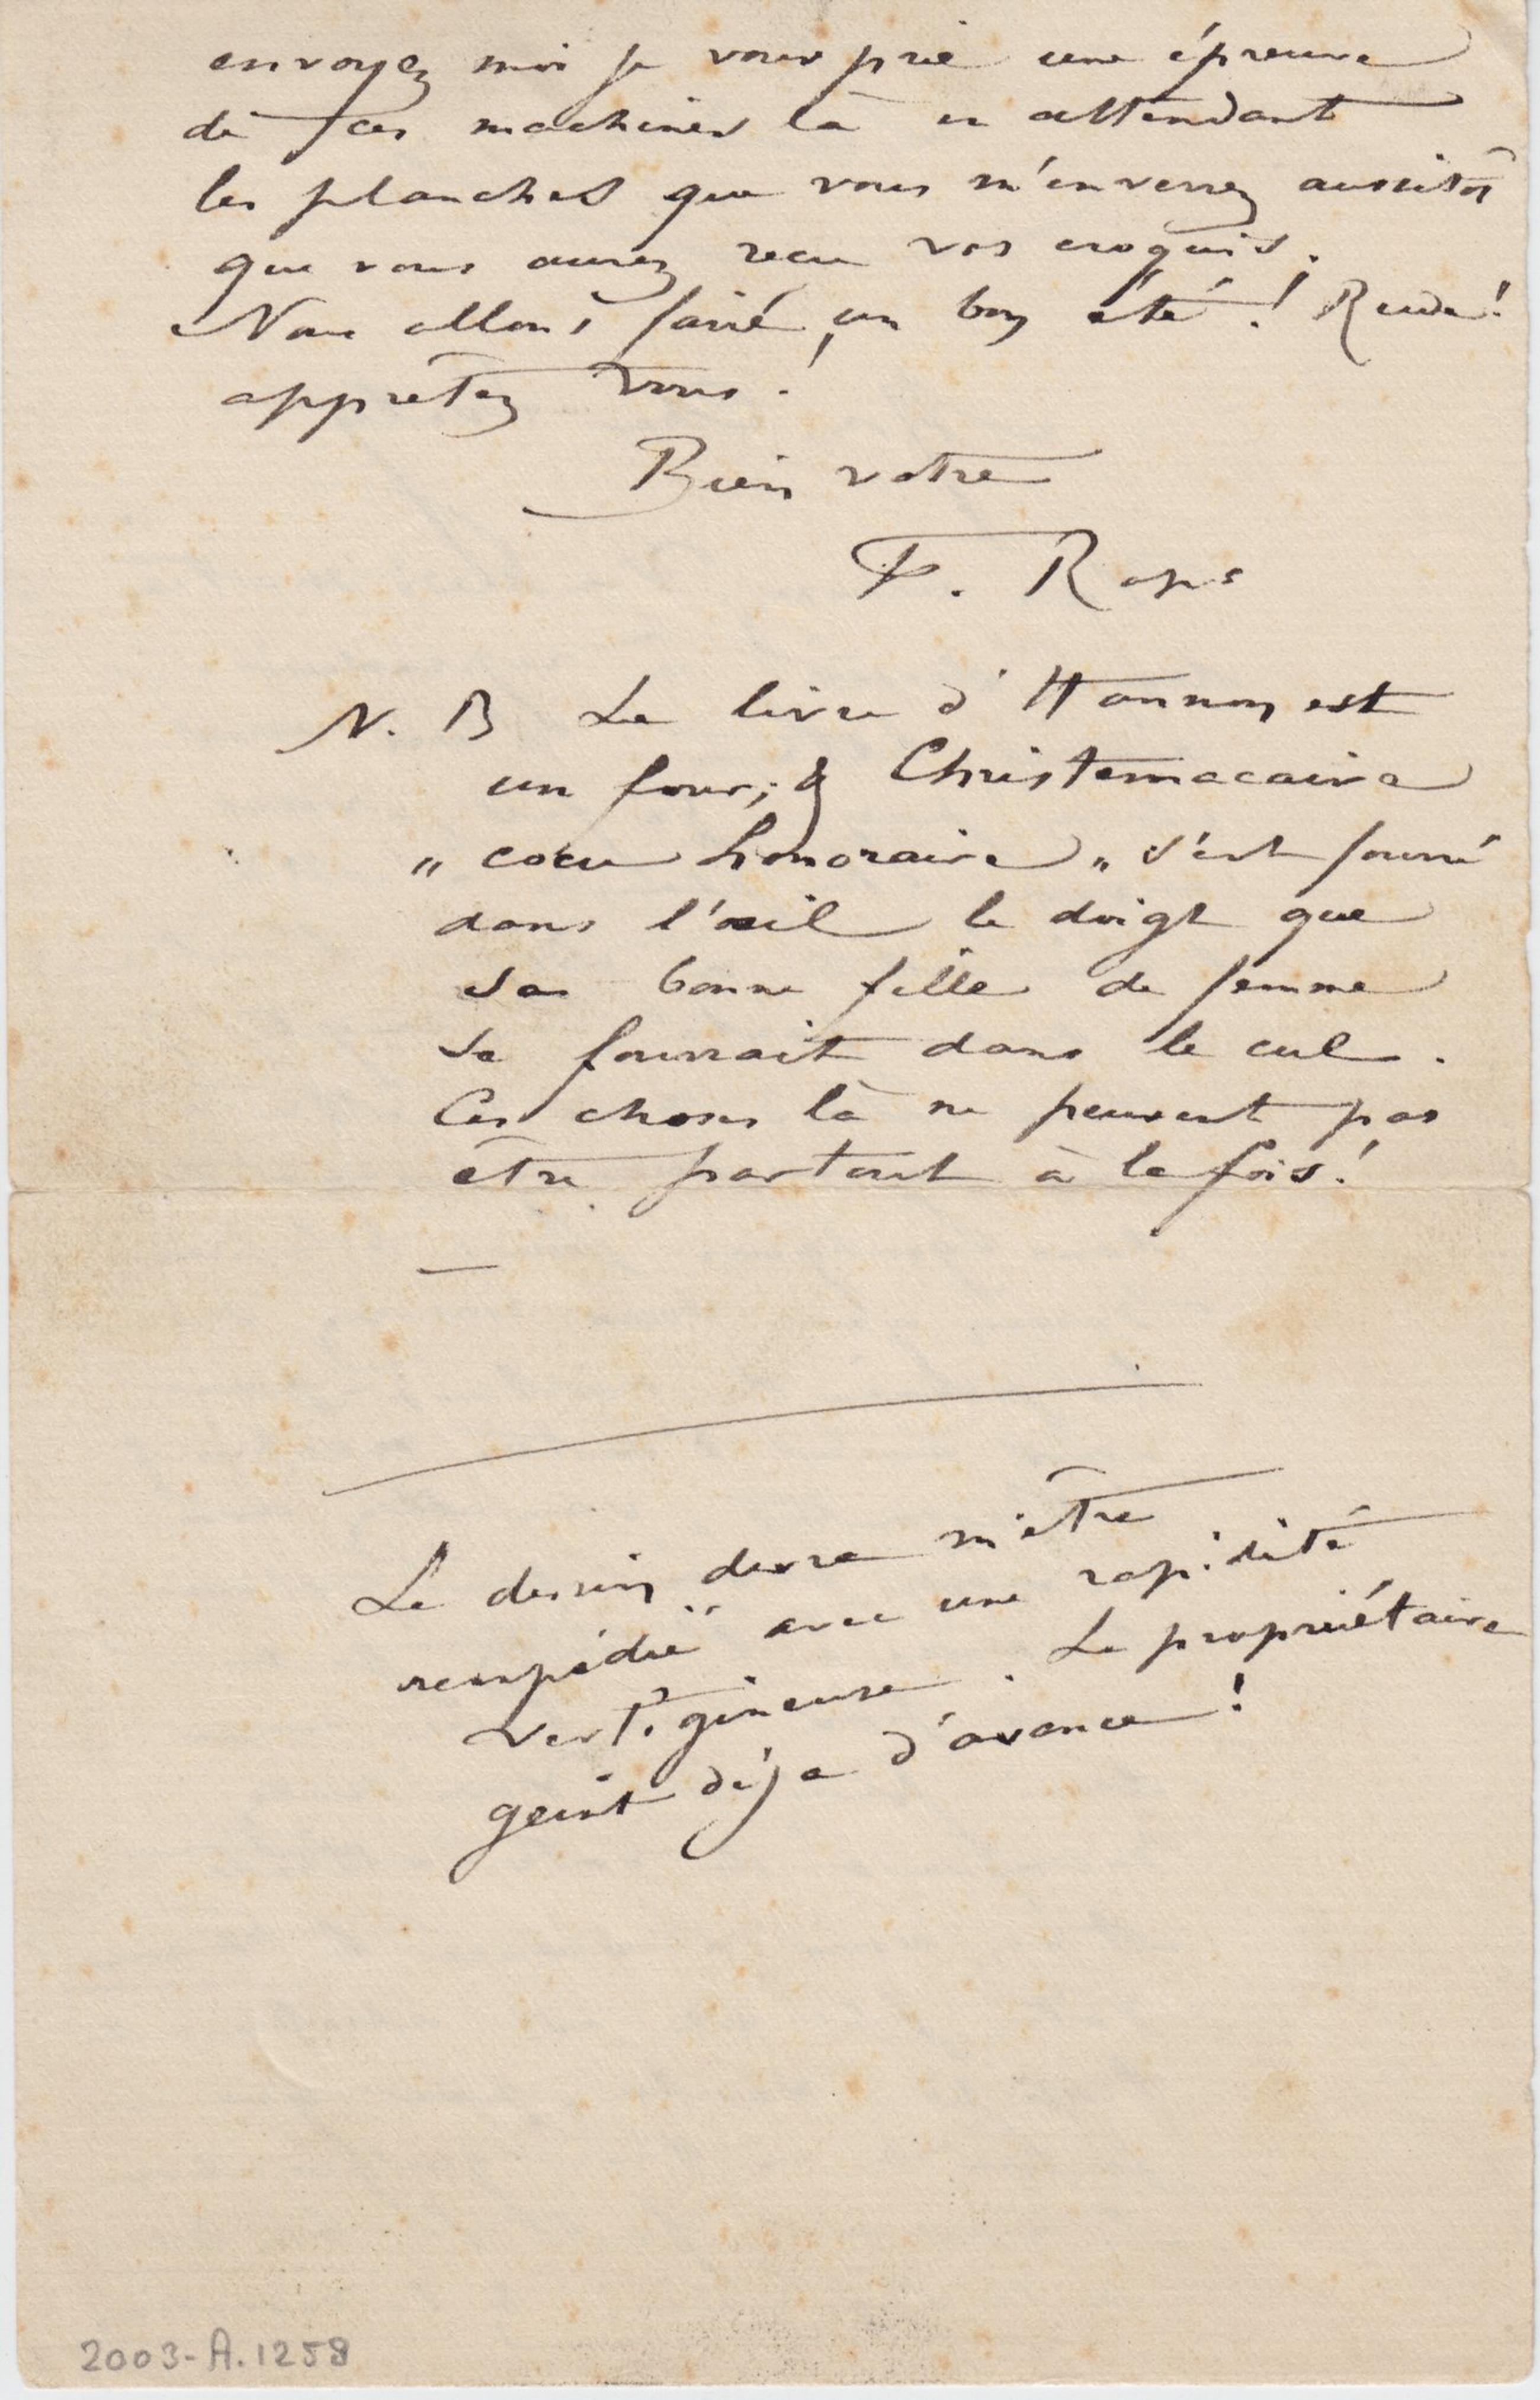 envoyez moi je vous prie une épreuve
de ces machines là en attendant
les planches que vous m'enverrez aussitôt
que vous aurez reçu vos croquis.
Nous allons faire un bon été ! Rude !
apprêtez vous !
Bien votre
F. Rops
N. B Le livre d'Hannon est
un four; & Christemacaire
" cocu honoraire " s'est fourré
dans l'œil le doigt que
sa bonne fille de femme
se fourrait dans le cul.
Ces choses là ne peuvent pas
être partout à la fois !
Le dessin devra m'être
réexpédié avec une rapidité
vertigineuse. Le propriétaire
geint déja d'avance !
2003-A.1258